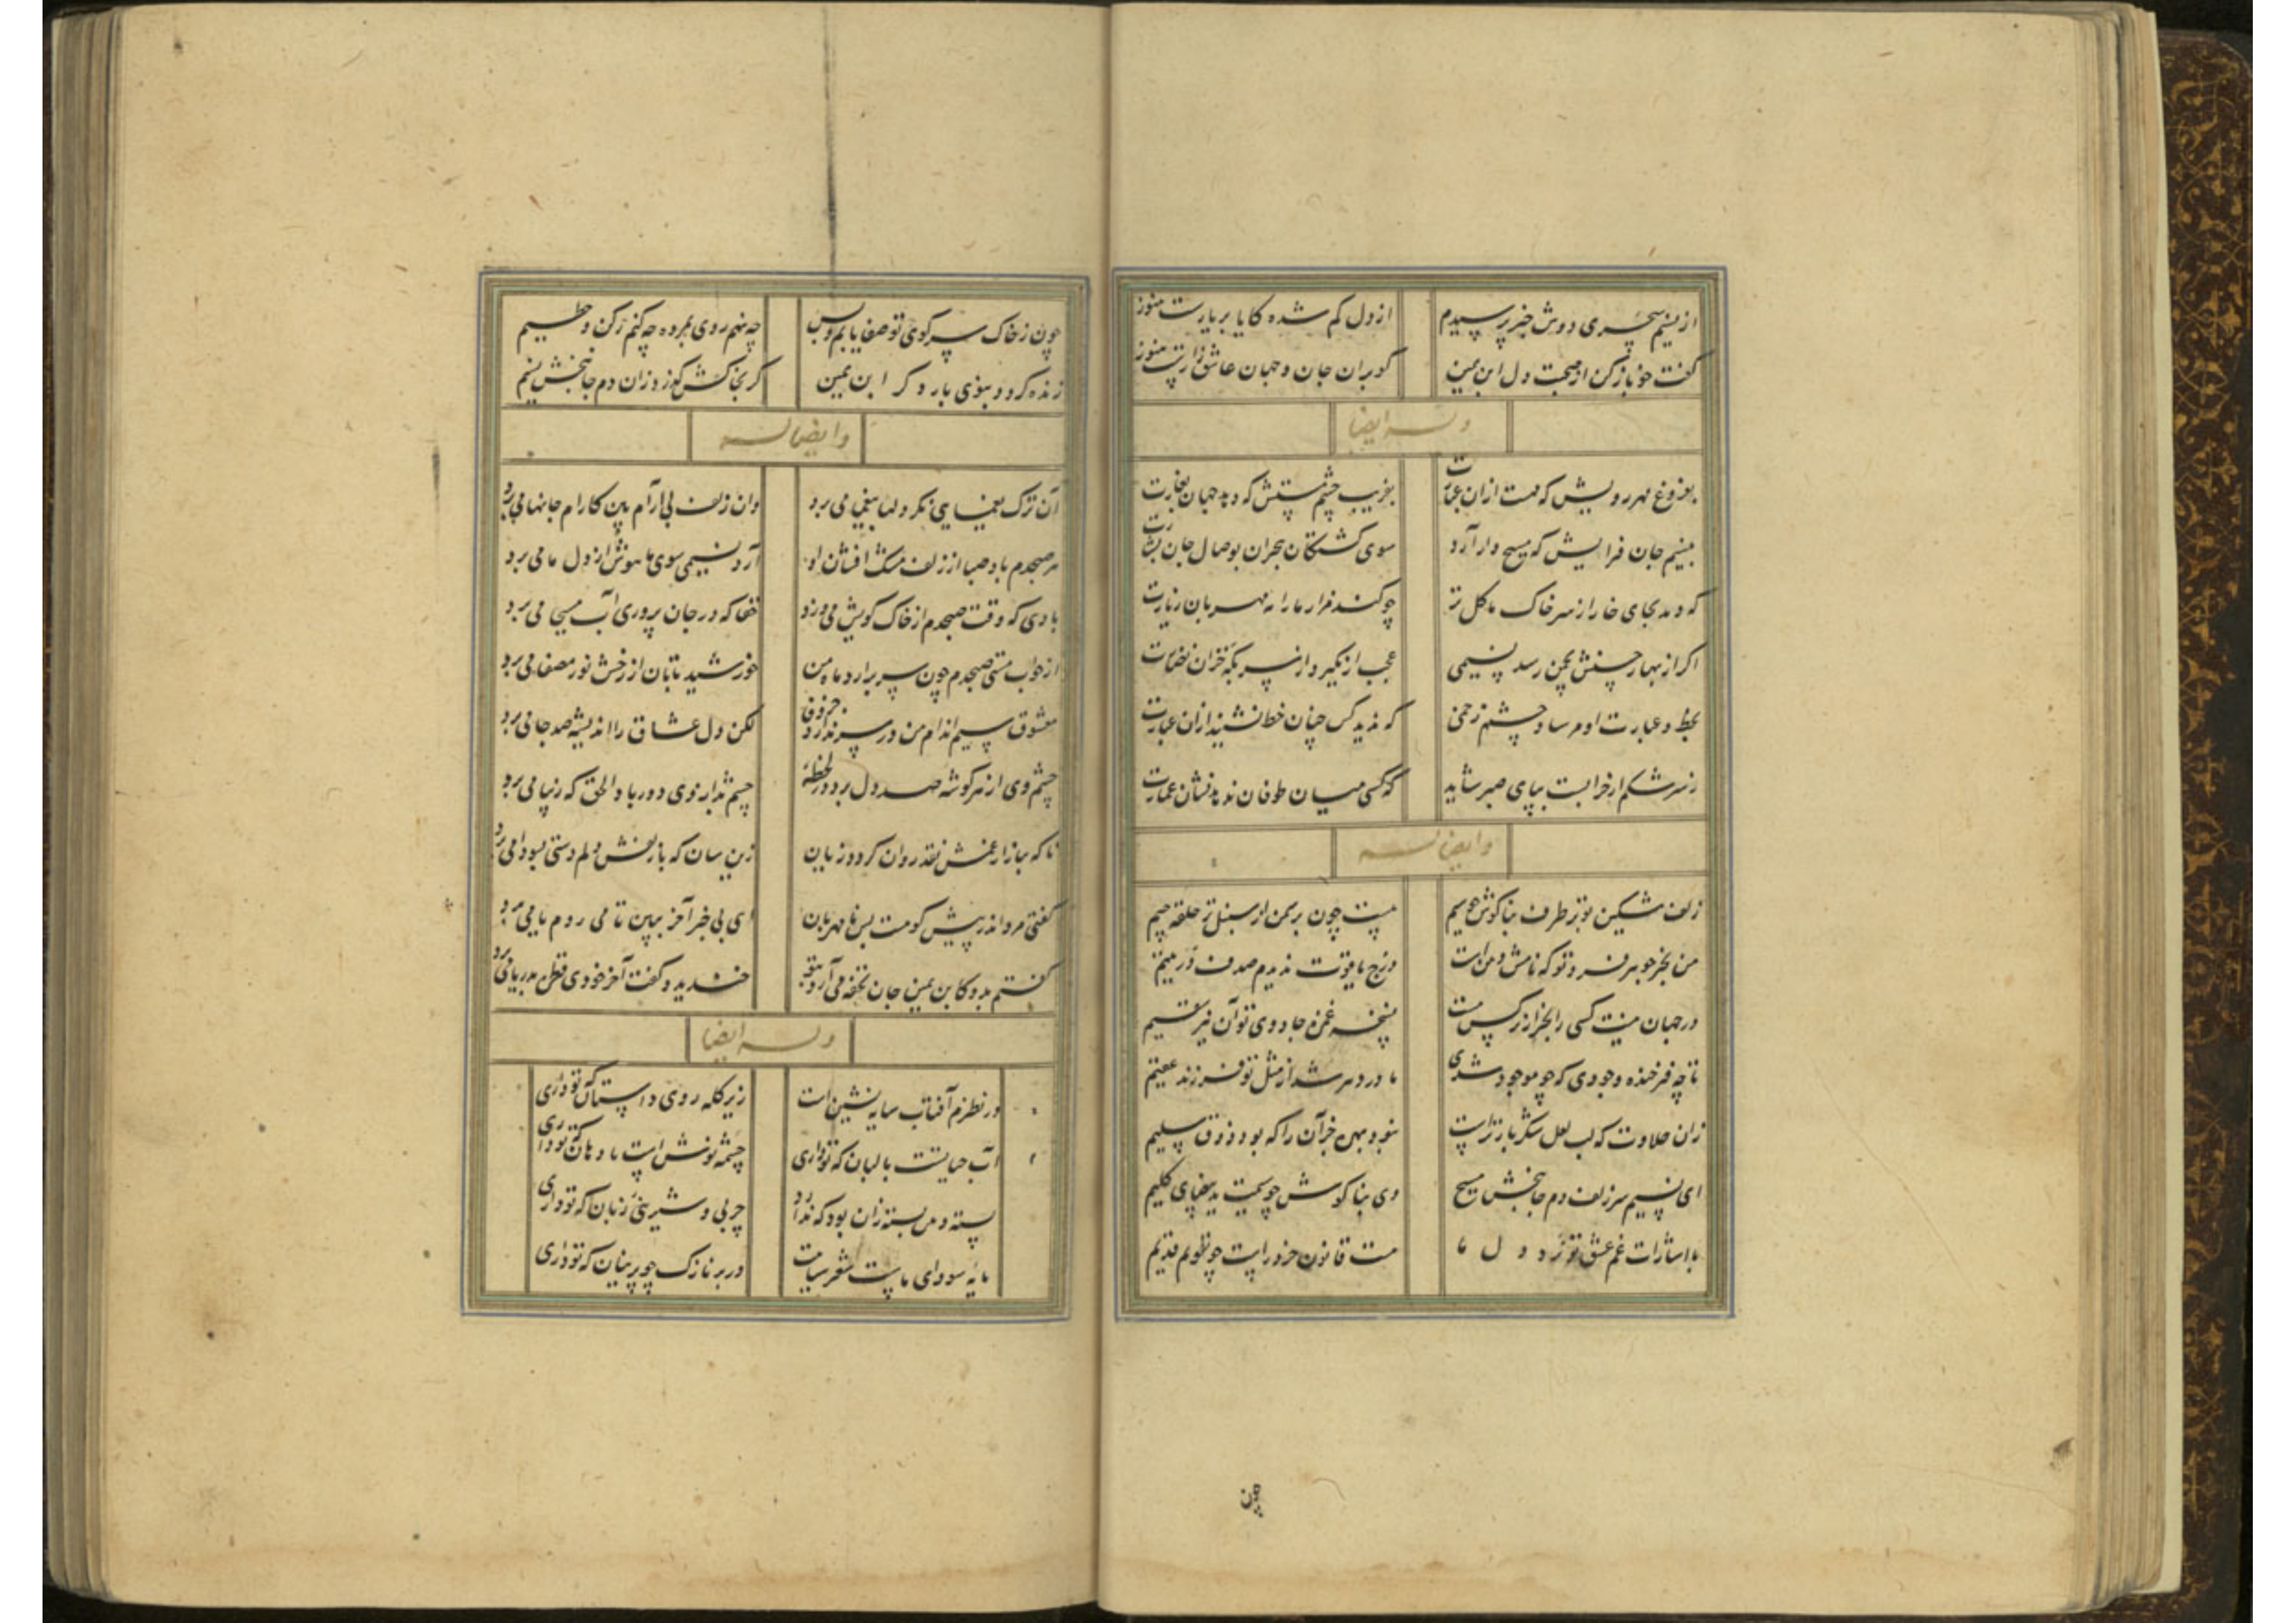 از نسیم سحری دوش خبر پرسیدم از دل گم شده کایا بر یارست هنوز
گفت خو باز کن از صحبت دل ابن یمین کو بران جان و جهان عاشق زارست هنوز
وله ایضا
بفروغ مهر رویش که مهست ازان عبارت بفریب چشم مستش که دهد جهان بغارت
بنسیم جان فزایش که مسیح وار آرد سوی کشتگان هجران بوصال جان بشارت
که دمد بجای خار از سر خاک ما گل تر چو کند مزار ما را مهربان زیارت
اگر از بهار حسنش بچمن رسد نسیمی عجب از نگیرد از سر بگه خزان نضارت
بخط و عبارت او مرساد چشم زخمی که ندید کس چنان خط نشنید ازان عبارت
ز سرشکم ار خرابست بنای صبر شاید که کسی میان طوفان ندهد نشان عمارت
وایضا له
زلف مشکین تو بر طرف بناگوش چو سیم هست چون بر سمن از سنبل تر حلقه جیم
من بجز جوهر فرد تو که نامش دهن است درج یاقوت ندیدم صدف در یتیم
در جهان نیست کسی را بجز از نرگس مست نسخه غمزه جادوی تو آن نیز سقیم
تا چه فرخنده وجودی که چو موجود شدی مادر دهر شد از مثل تو فرزند عقیم
زان حلاوت که لب لعل شکربار تراست نبود بهره جز آن را که بود ذوق سلیم
ای نسیم سر زلفت دم جان بخش مسیح وی بناگوش چو سیمت ید بیضای کلیم
با اشارات غم عشق تو زد در دل ما هست قانون خرد راست چو تقویم قدیم
چون
چون ز خاک سر کوی تو صفا یابم و بس چه نهم روی بمروه چه کنم رکن و حطیم
زنده گردد ببوی بار دگر ابن یمین گر بخاکش گذرد زان دم جان بخش نسیم
وایضا له
آن ترک یغمایی نگر دلها بیغما می برد وان زلف بی آرام بین کارام جانها می برد
هر صبحدم باد صبا از زلف مشک افشان او آرد نسیمی سوی ما هوش از دل ما می برد
بادی که وقت صبحدم از خاک کویش می وزد حقا که در جان پروری آب مسیحا می برد
از خواب مستی صبحدم چون سر برارد ماه من خورشید تابان از رخش نور مصفا می برد
معشوق سیم اندام من در سر ندارد جز وفا لکن دل عشاق را اندیشه صد جا می برد
چشم وی از هر گوشه صد دل برد در لحظه چشم بد از روی دور باد الحق که زیبا می برد
تا که ببازار غمش نقد روان گردد زیان زین سان که با زلفش دلم دستی بسودا می برد
گفتی مرو اندر پیش کوهست بس نامهربان ای بی خبر آخر ببین تا می روم یا می برد
گفتم بدو کابن یمین جان تحفه می آرد بتو خندید و گفت آخر خودی قطره بدریا می برد
وله ایضا
در نظرم آفتاب سایه نشین است زیر کله روی دلستان که تو داری
آب حیاتست با لبان که تو داری چشمه نوش است یا دهان که تو داری
پسته دهن بسته زان بود که ندارد چربی و شیرینی زبان که تو داری
مایه سودای ماست شعر سیاهت در بر نازک چو پرنیان که تو داری